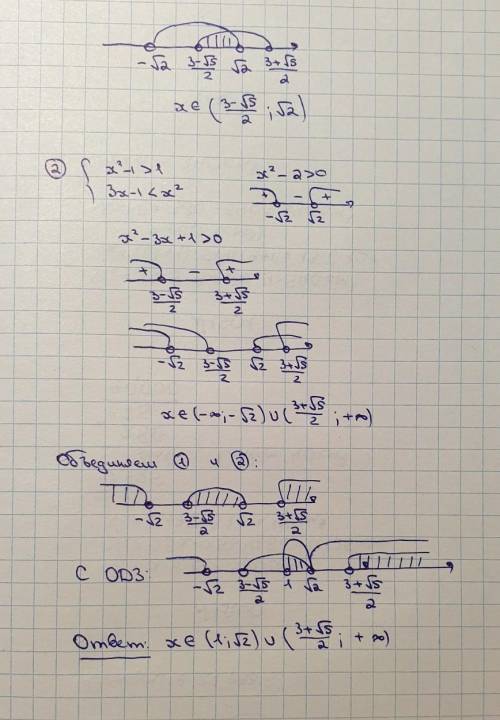 -√2 (3-√5)/2 √2 (3+√5)/2
x∈((3-√5)/2; √2)
② { x²-1>1
3x-1<x²
x²-2>0
+ - +
-√2 √2
x²-3x+1>0
+ - +
(3-√5)/2 (3+√5)/2
-√2 (3-√5)/2 √2 (3+√5)/2
x∈(-∞;-√2)∪((3+√5)/2; +∞)
Объединяем ① и ②:
-√2 (3-√5)/2 √2 (3+√5)/2
С ОДЗ:
-√2 (3-√5)/2 1 √2 (3+√5)/2
Ответ: x∈(1;√2)∪((3+√5)/2; +∞)